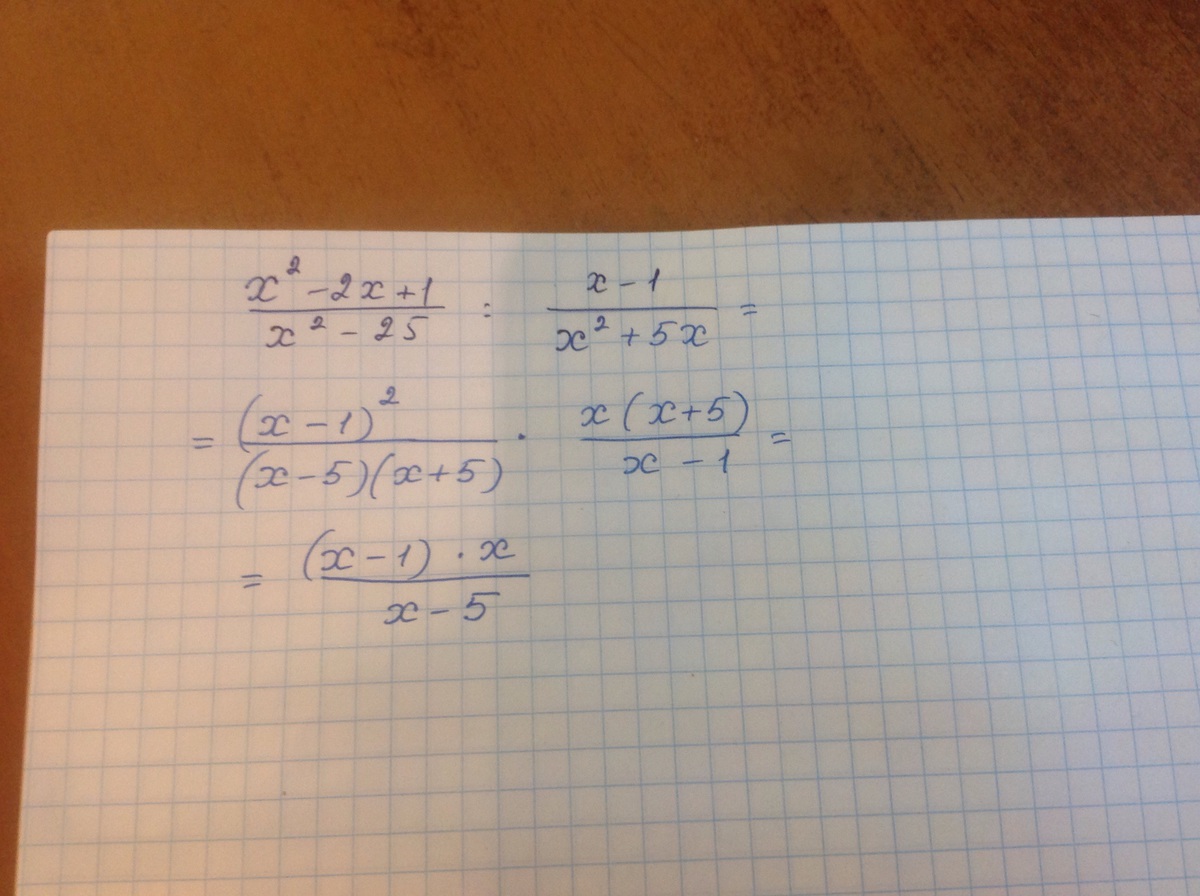 x² - 2x + 1 / x² - 25 : x - 1 / x² + 5x =
= (x - 1)² / (x - 5)(x + 5) · x(x + 5) / x - 1 =
= (x - 1) · x / x - 5